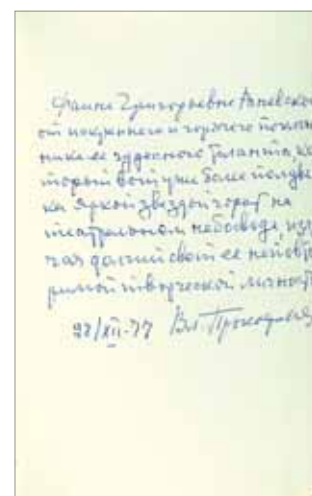 Фаине Григорьевне Раневской
от искреннего и горячего поклон-
ника ее чудесного таланта, ко-
торый вот уже более полуве-
ка яркой звездой горит на
театральном небосводе, излу-
чая долгий свет ее неповто-
римой творческой личности
28/XII-77 Вл. Прокофьев